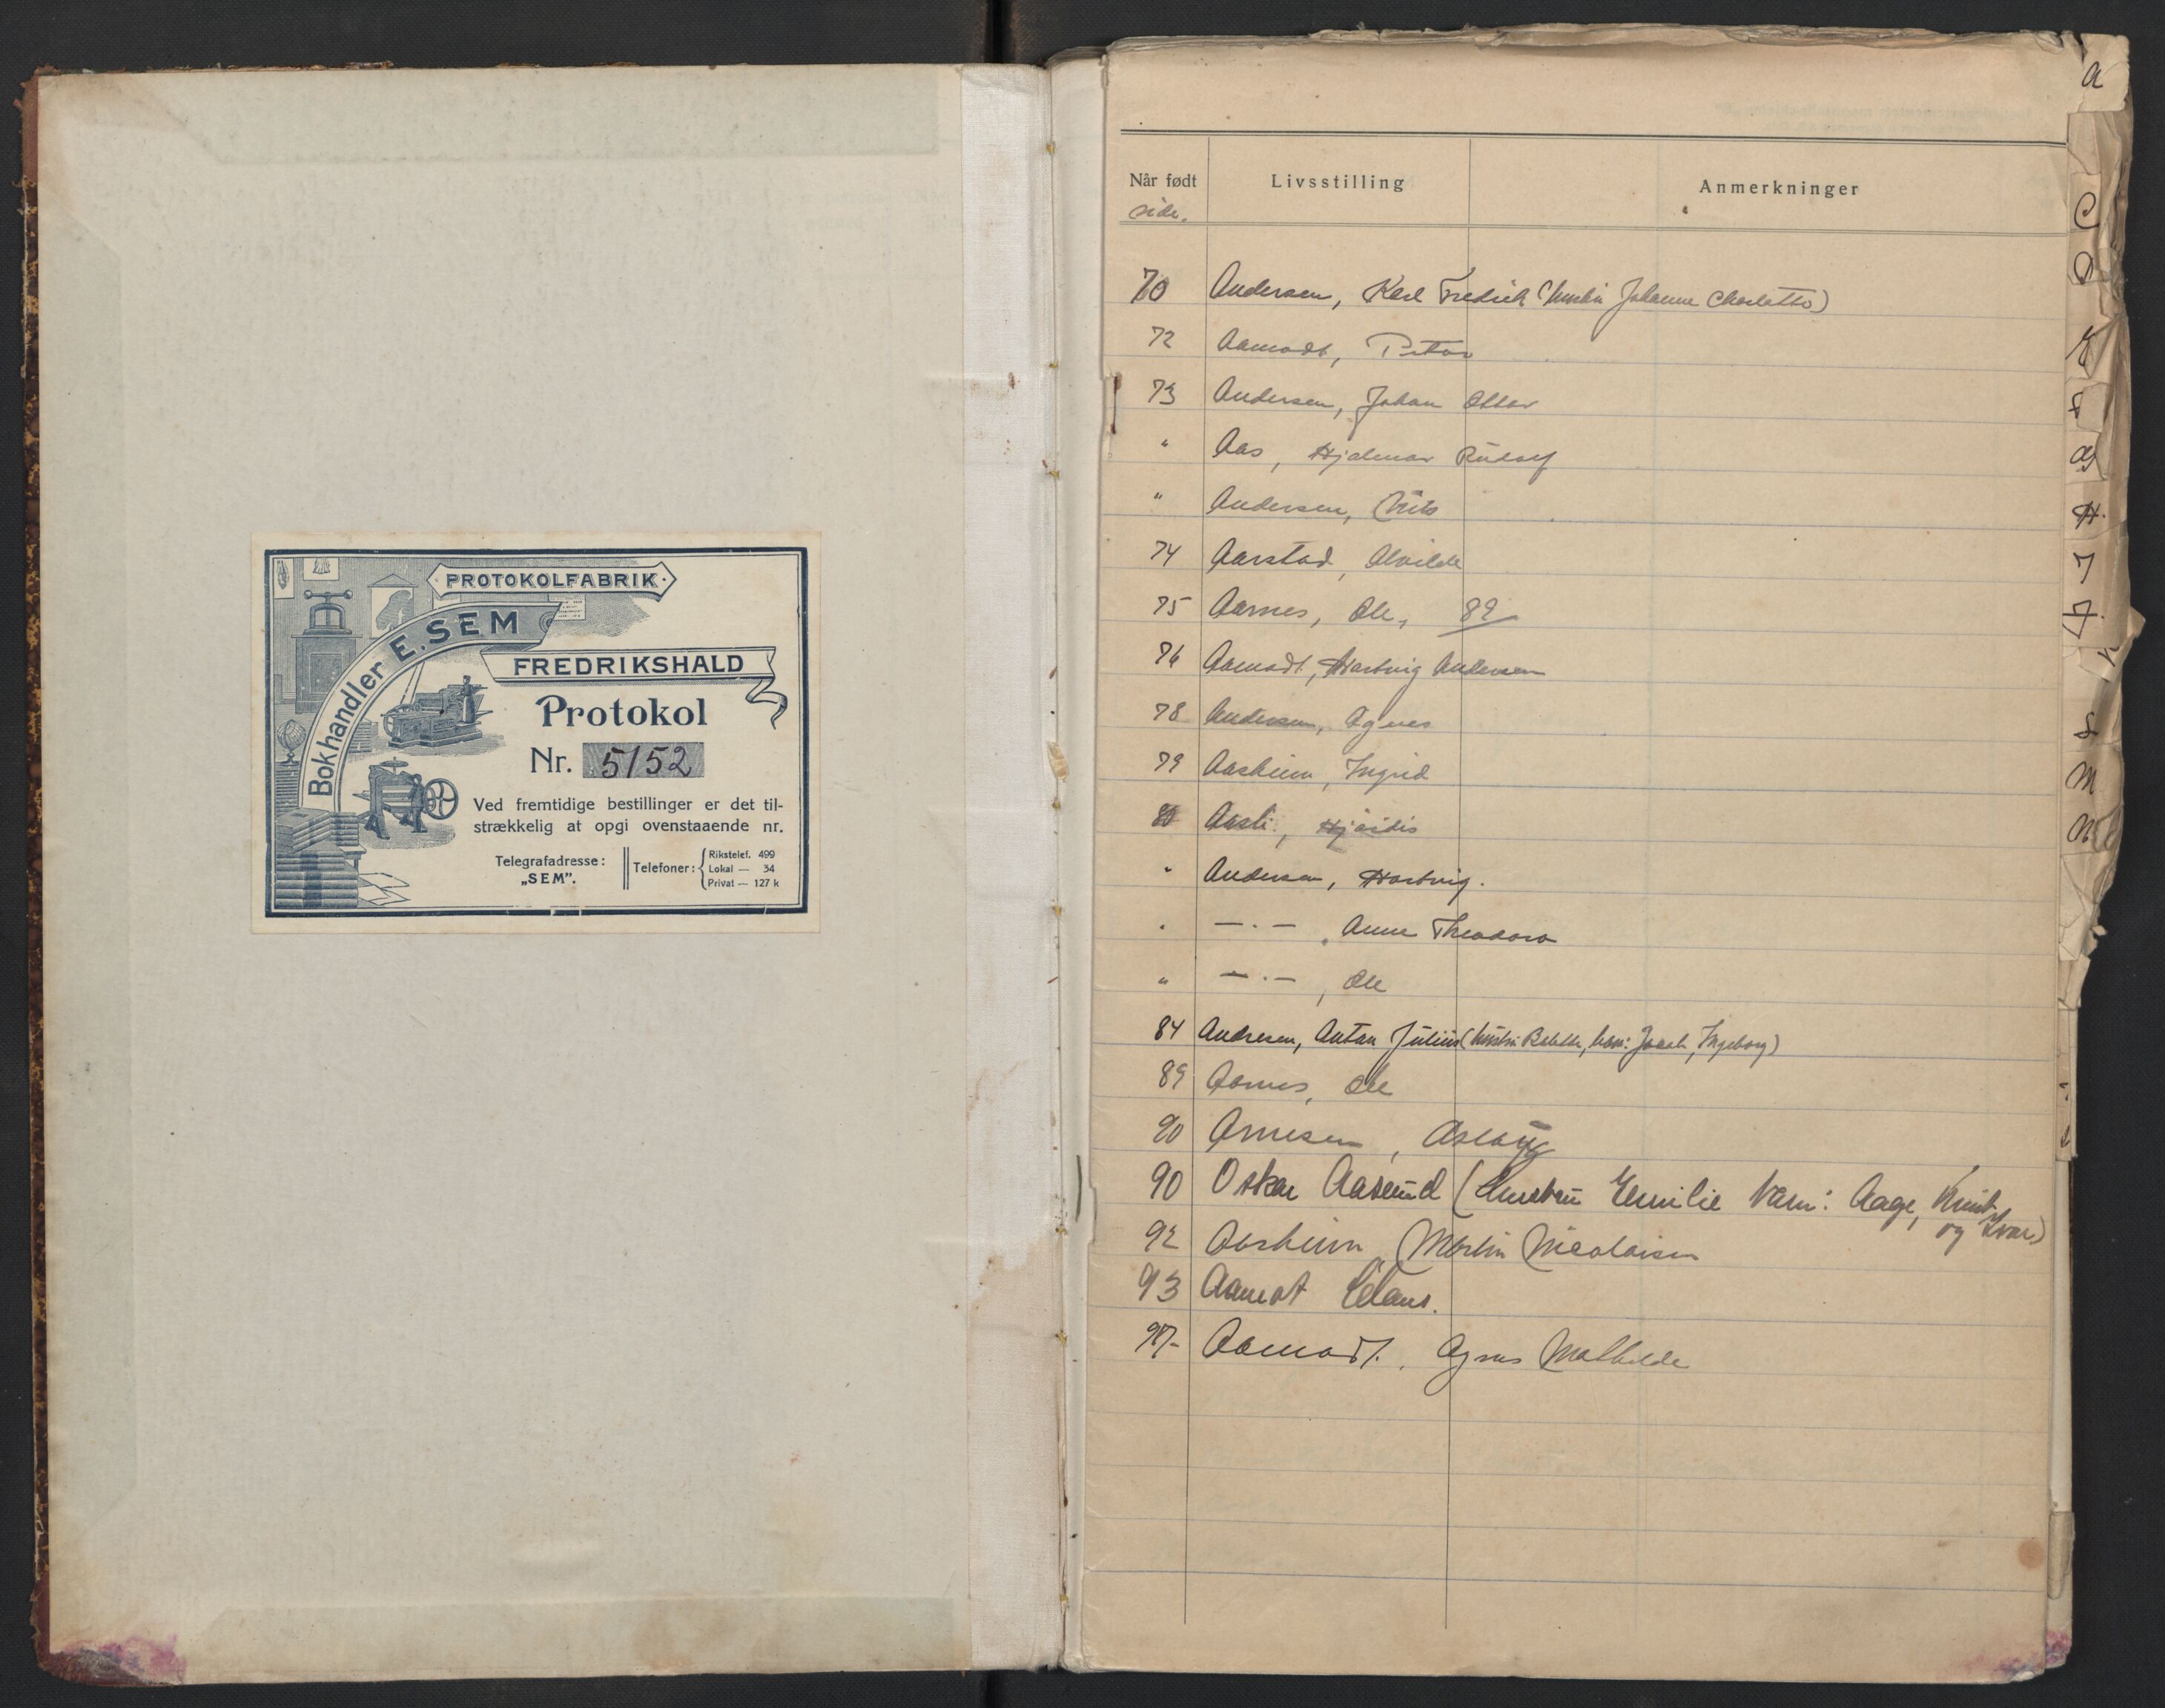 PROTOKOLFABRIK
Bokhandler E. SEM
FREDRIKSHALD
Protokol
Nr. 5152
Ved fremtidige bestillinger er det til-
strækkelig at opgi ovenstaaende nr.
Telegrafadresse:
„SEM".
Telefoner:
Rikstelef. 499
Lokal — 34
Privat — 127 k
Når født Livsstilling Anmerkninger
side.
70 Andersen, Karl Fredrik (hustru Johanne Charlotte)
72 Aamodt, Petter
73 Andersen, Johan Ottar
" Aas, Hjalmar Rudolf
" Andersen, Nils
74 Aarstad, Alvilde
75 Aarnes, Ole, 89
76 Aamodt, Hartvig Andersen
78 Andersen, Agnes
79 Aasheim, Ingrid
80 Aasli, Hjørdis
" Andersen, Hartvig.
" —.— , Anne Theodora
" —.— , Ole
84 Andresen, Anton Julius (hustru barn: Jacob, Ingeborg)
89 Aarnes, Ole
90 Arnesen, Aslaug
90 Oskar Aaslund (hustru Emilie barn: Aage, Knut
og Ivar)
92 Aasheim, Martin Nicolaisen
93 Aamot
97- Aamodt, Agnes Mathilde
A
C
D
E
F
G
H
I
J
K
L
M
N